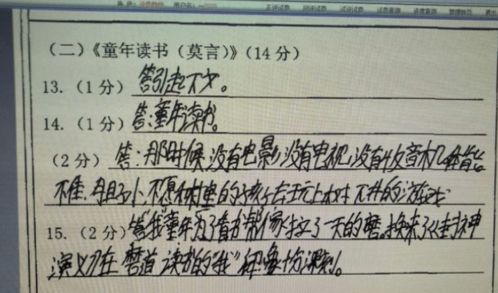 (二)《童年读书(莫言)》(14分)
13.(1分)答引起下文。
14.(1分)答:童年读书。
(2分)答:那时候,没有电影没有电视,没有收音机,
不佳,胆子小,不愿村里的孩子去玩上树下井的游戏
15.(2分)答我童年为了看方家拉了一天的磨,换来了《封神
演义》在磨道读书的"我"印象深刻。